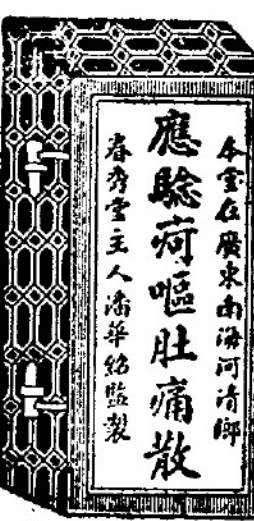 本堂在廣東南海河清鄉
應驗痾嘔肚痛散
春秀堂主人潘華紹監製